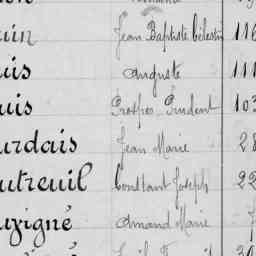 uin Jean Baptiste Célestin 116
uis Auguste 111
uis Prosper Prudent 103
urdais Jean Marie 28
utreuil Constant Joseph 22
uvigné Amand Marie